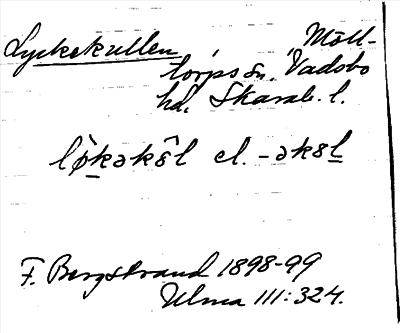 Lyckekullen, Möll-
torps sn. Vadsbo
hd, Skarab. l.
lø̀kək8̂l el. -ək8l
F. Bergstrand 1898-99
Ulma 111:324.